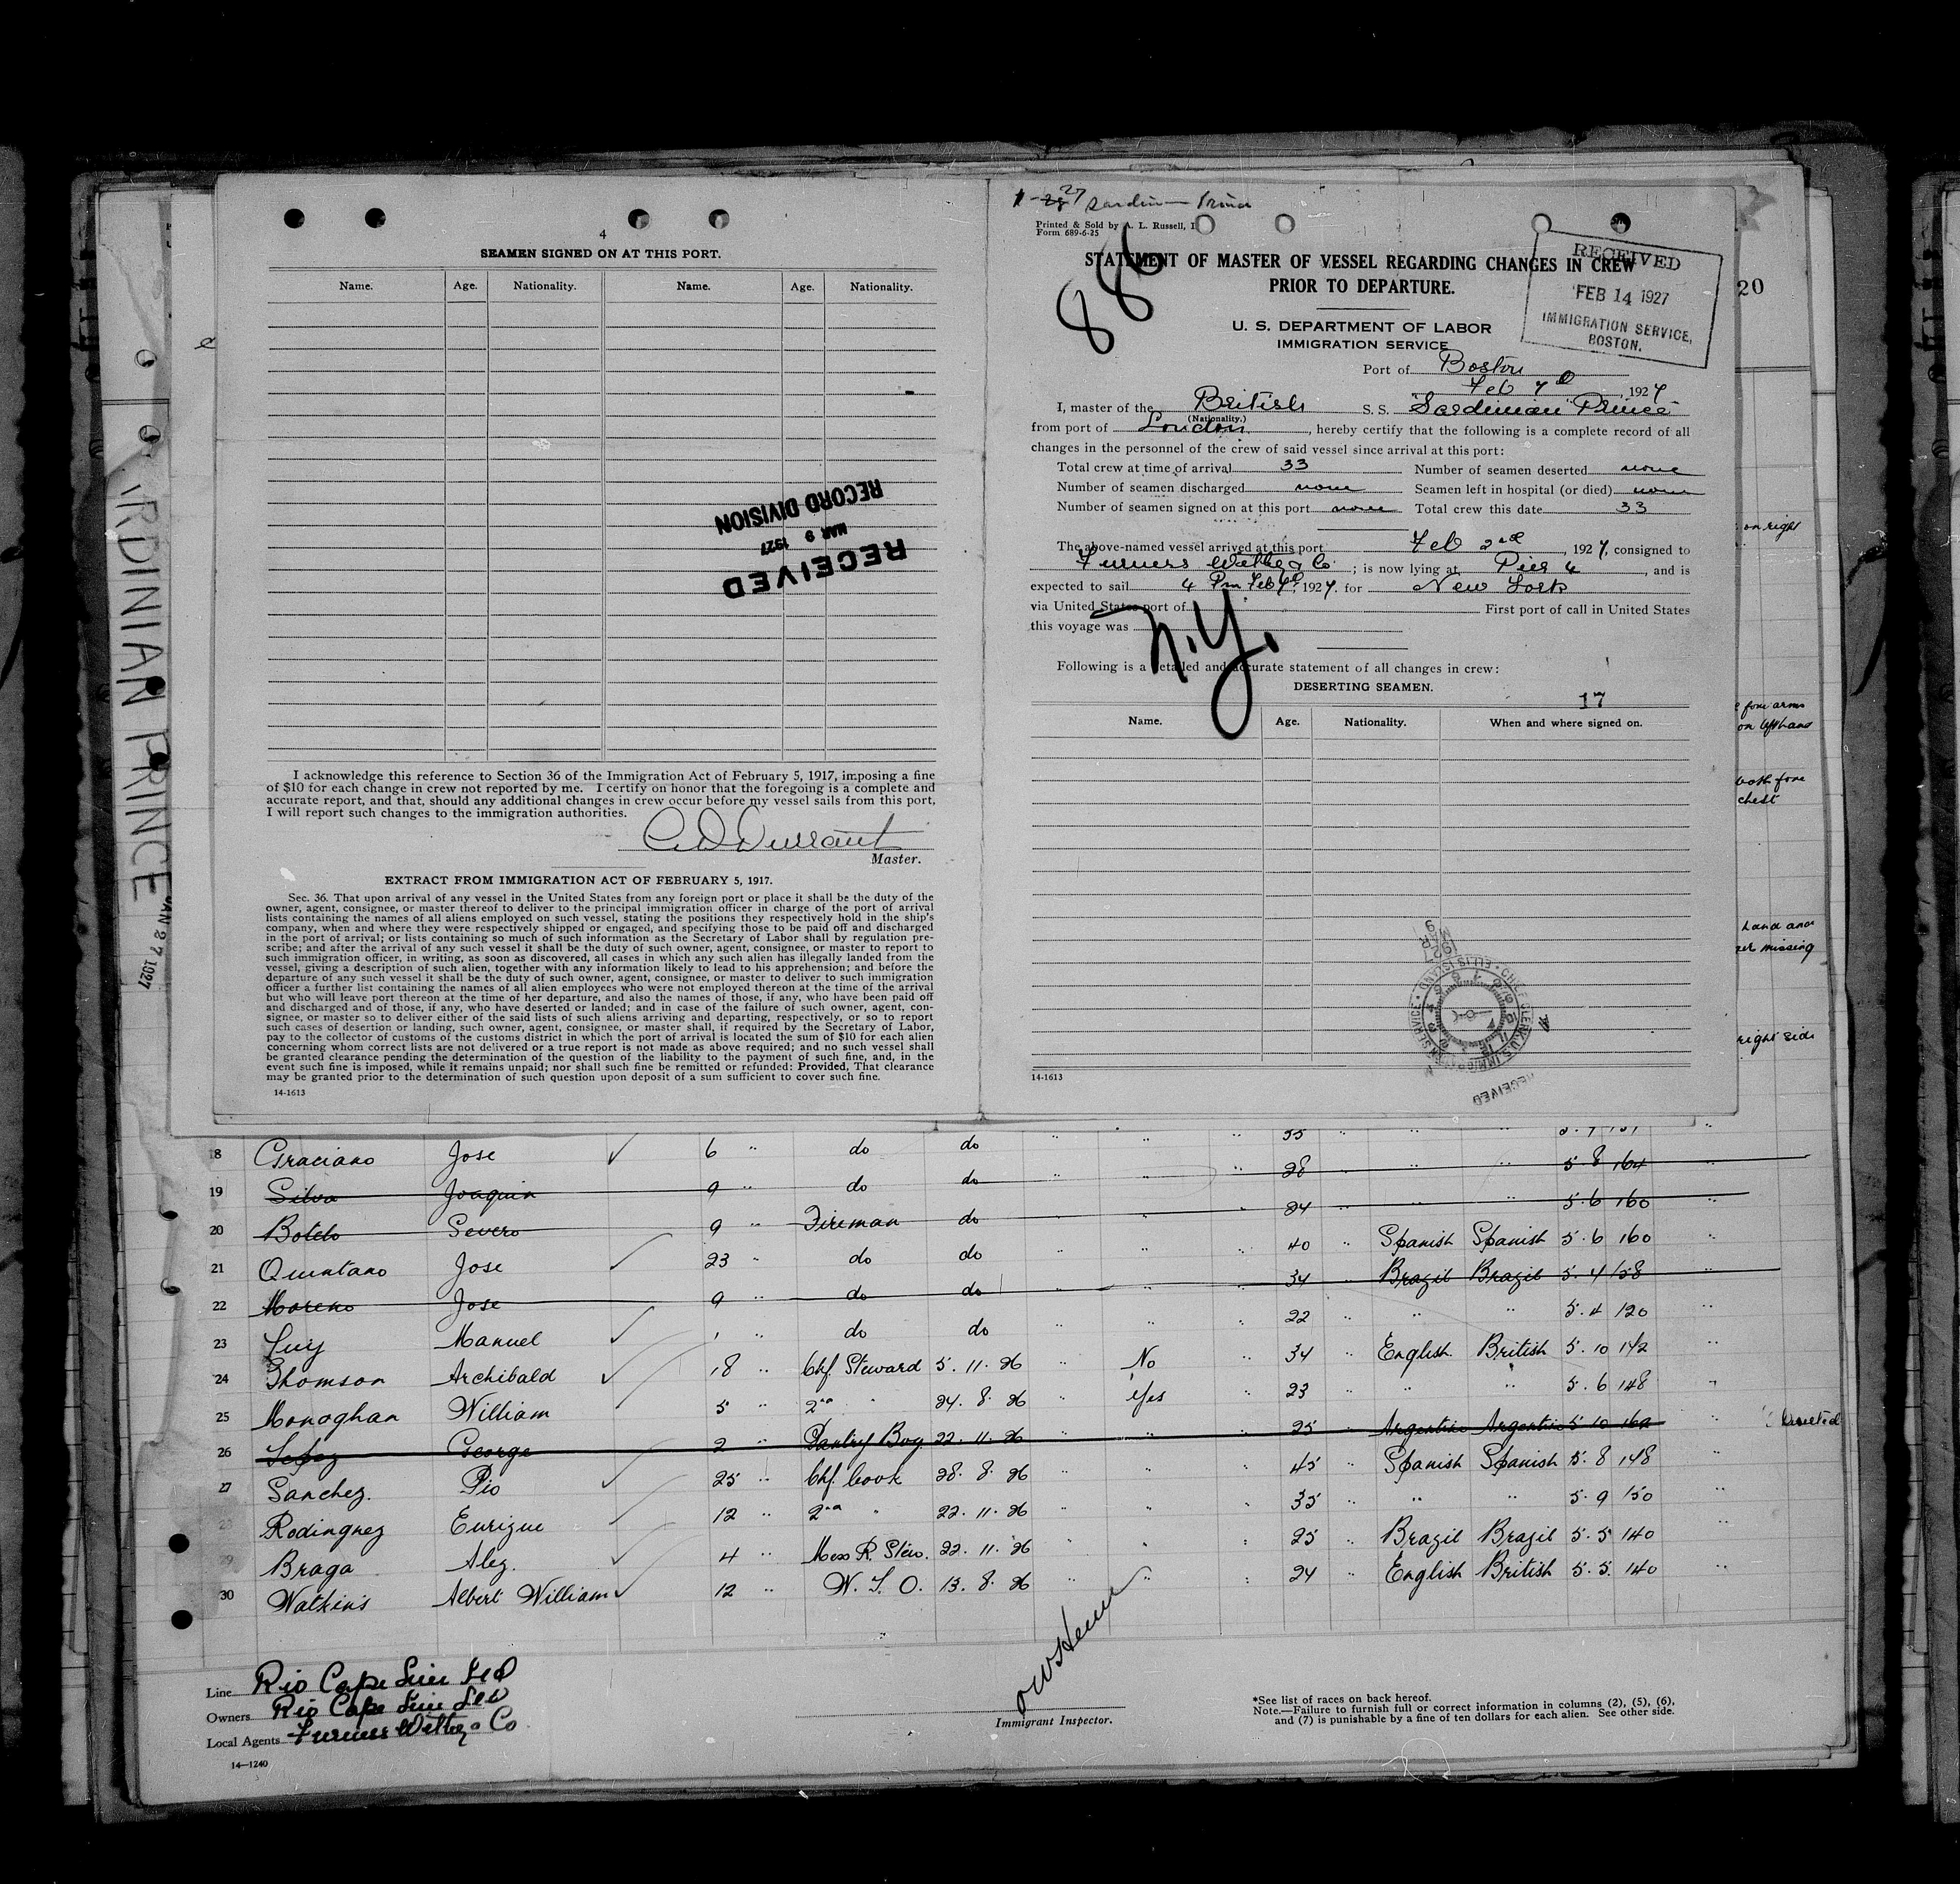 4
SEAMEN SIGNED ON AT THIS PORT.
Name. Age. Nationality. Name. Age. Nationality.
RECEIVED
MAR 9 1927
RECORD DIVISION
I acknowledge this reference to Section 36 of the Immigration Act of February 5, 1917, imposing a fine
of $10 for each change in crew not reported by me. I certify on honor that the foregoing is a complete and
accurate report, and that, should any additional changes in crew occur before my vessel sails from this port,
I will report such changes to the immigration authorities.
Durrant
Master.
EXTRACT FROM IMMIGRATION ACT OF FEBRUARY 5, 1917.
Sec. 36. That upon arrival of any vessel in the United States from any foreign port or place it shall be the duty of the
owner, agent, consignee, or master thereof to deliver to the principal immigration officer in charge of the port of arrival
lists containing the names of all aliens employed on such vessel, stating the positions they respectively hold in the ship's
company, when and where they were respectively shipped or engaged, and specifying those to be paid off and discharged
in the port of arrival; or lists containing so much of such information as the Secretary of Labor shall by regulation pre-
scribe; and after the arrival of any such vessel it shall be the duty of such owner, agent, consignee, or master to report to
such immigration officer, in writing, as soon as discovered, all cases in which any such alien has illegally landed from the
vessel, giving a description of such alien, together with any information likely to lead to his apprehension; and before the
departure of any such vessel it shall be the duty of such owner, agent, consignee, or master to deliver to such immigration
officer a further list containing the names of all alien employees who were not employed thereon at the time of the arrival
but who will leave port thereon at the time of her departure, and also the names of those, if any, who have been paid off
and discharged and of those, if any, who have deserted or landed; and in case of the failure of such owner, agent, con-
signee, or master so to deliver either of the said lists of such aliens arriving and departing, respectively, or so to report
such cases of desertion or landing, such owner, agent, consignee, or master shall, if required by the Secretary of Labor,
pay to the collector of customs of the customs district in which the port of arrival is located the sum of $10 for each alien
concerning whom correct lists are not delivered or a true report is not made as above required; and no such vessel shall
be granted clearance pending the determination of the question of the liability to the payment of such fine, and, in the
event such fine is imposed, while it remains unpaid; nor shall such fine be remitted or refunded: Provided, That clearance
may be granted prior to the determination of such question upon deposit of a sum sufficient to cover such fine.
14-1613
RDINIAN PRINCE
JAN 27 1927
Printed & Sold by A. L. Russell,
Form 689-6-25
886
STATEMENT OF MASTER OF VESSEL REGARDING CHANGES IN CREW
PRIOR TO DEPARTURE.
RECEIVED
FEB 14 1927
IMMIGRATION SERVICE,
BOSTON.
U. S. DEPARTMENT OF LABOR
IMMIGRATION SERVICE
Port of Boston
Feb 7th, 1927
I, master of the British S. S. "Sardinian Prince"
(Nationality.)
from port of London, hereby certify that the following is a complete record of all
changes in the personnel of the crew of said vessel since arrival at this port:
Total crew at time of arrival 33 Number of seamen deserted none
Number of seamen discharged none Seamen left in hospital (or died) none
Number of seamen signed on at this port none Total crew this date 33
The above-named vessel arrived at this port Feb 2nd, 1927, consigned to
Furness Withy & Co.; is now lying at Pier 4, and is
expected to sail 4 Pm Feb 7th, 1927. for New York
via United States port of First port of call in United States
this voyage was N.Y.
Following is a detailed and accurate statement of all changes in crew:
DESERTING SEAMEN.
17
Name. Age. Nationality. When and where signed on.
14-1613
RECEIVED
20
on right
fore arms
on left hand
both fore
chest
hand and
missing
right side
18 Graciano Jose 6 " do do " " " 35 " " "
19 Silva Joaquin 9 " do do " " 28 " " " 5.8 164 "
20 Botelo Severo 9 " Fireman do " " 24 " " 5.6 160
21 Quintano Jose 23 " do do " " " 40 " Spanish Spanish 5.6 160 "
22 Moreno Jose 9 " do do " 34 Brazil Brazil 5.4 158 "
23 Manuel " do do " " " 22 " " 5.4 120 "
24 Thomson Archibald 18 " Chf. Steward 5.11.26 " No " 34 " English British 5.10 142 "
25 Monoghan William 5 " 2nd " 24.8.26 " Yes " 23 " " " 5.6 148 "
26 Lopez George 2 " Pantry Boy 22.11.26 " " " 25 Argentine Argentine 5.10 160 " Deserted
27 Sanchez. Pio 25 " Chf. Cook 28.8.26 " " " 45 " Spanish Spanish 5.8 148 "
28 Rodinguez Enrique 12 " 2nd " 22.11.26 " " " 35 " " " 5.9 150 "
29 Braga Alez. 4 " Mess R. Stew. 22.11.26 " " : 25 " Brazil Brazil 5.5 140 "
30 Watkins Albert William 12 " W. T. O. 13.8.26 " " : 24 " English British 5.5. 140 "
Line Rio Cape Line Ltd
Owners Rio Cape Line Ltd
Local Agents Furness Withy & Co
14—1240
Immigrant Inspector.
*See list of races on back hereof.
Note.—Failure to furnish full or correct information in columns (2), (5), (6),
and (7) is punishable by a fine of ten dollars for each alien. See other side.